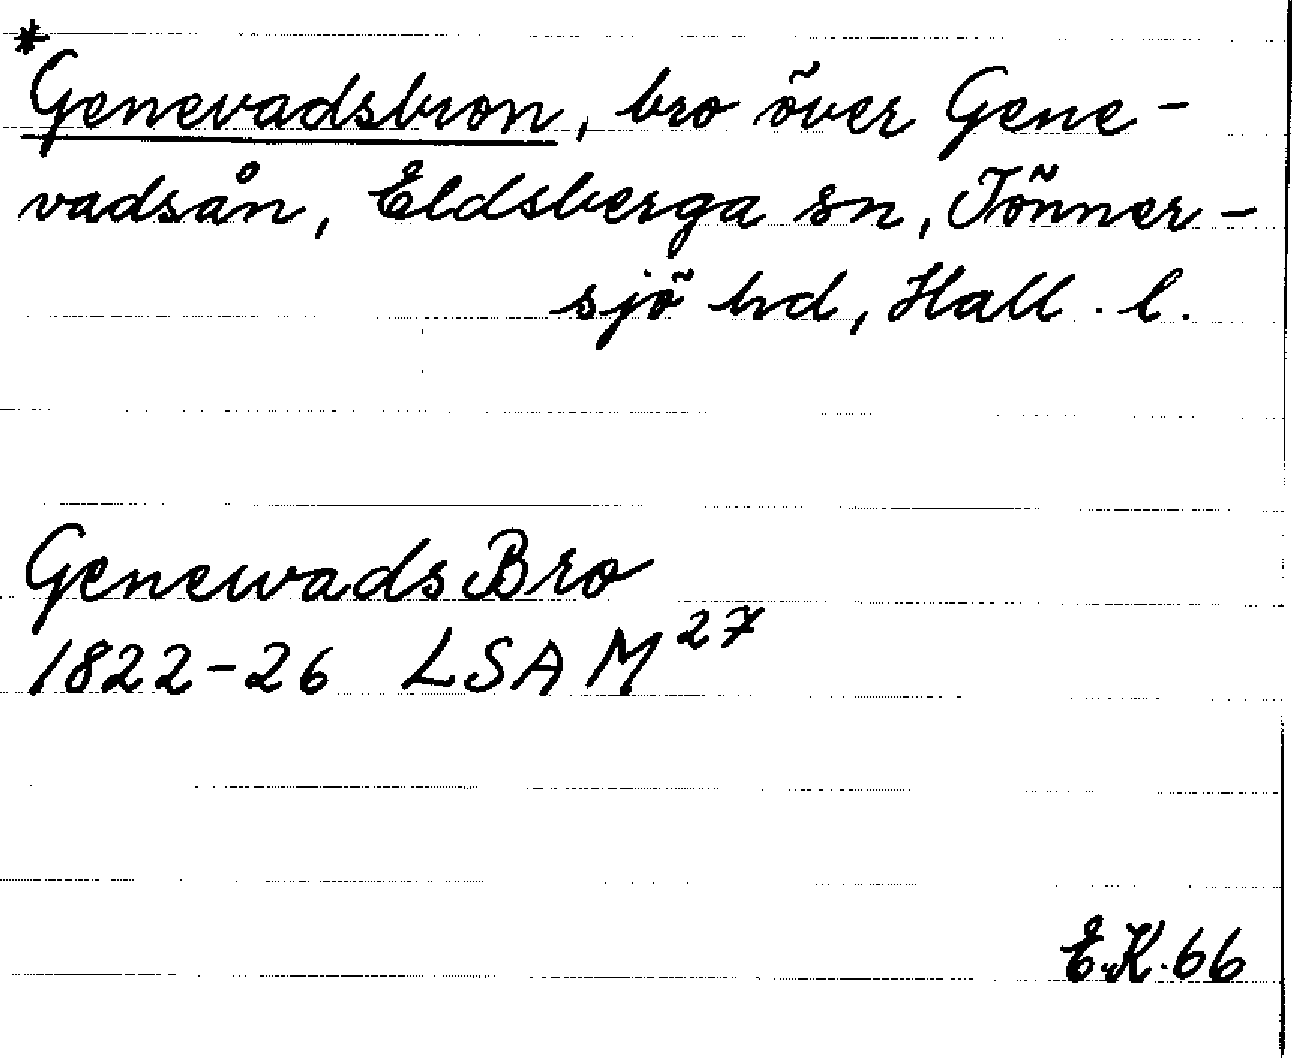 *Genevadsbron, bro över Gene-
vadsån, Eldsberga sn, Tönner-
sjö hd, Hall. l.
Genewads Bro
1822-26 LSA M27
E.K. 66